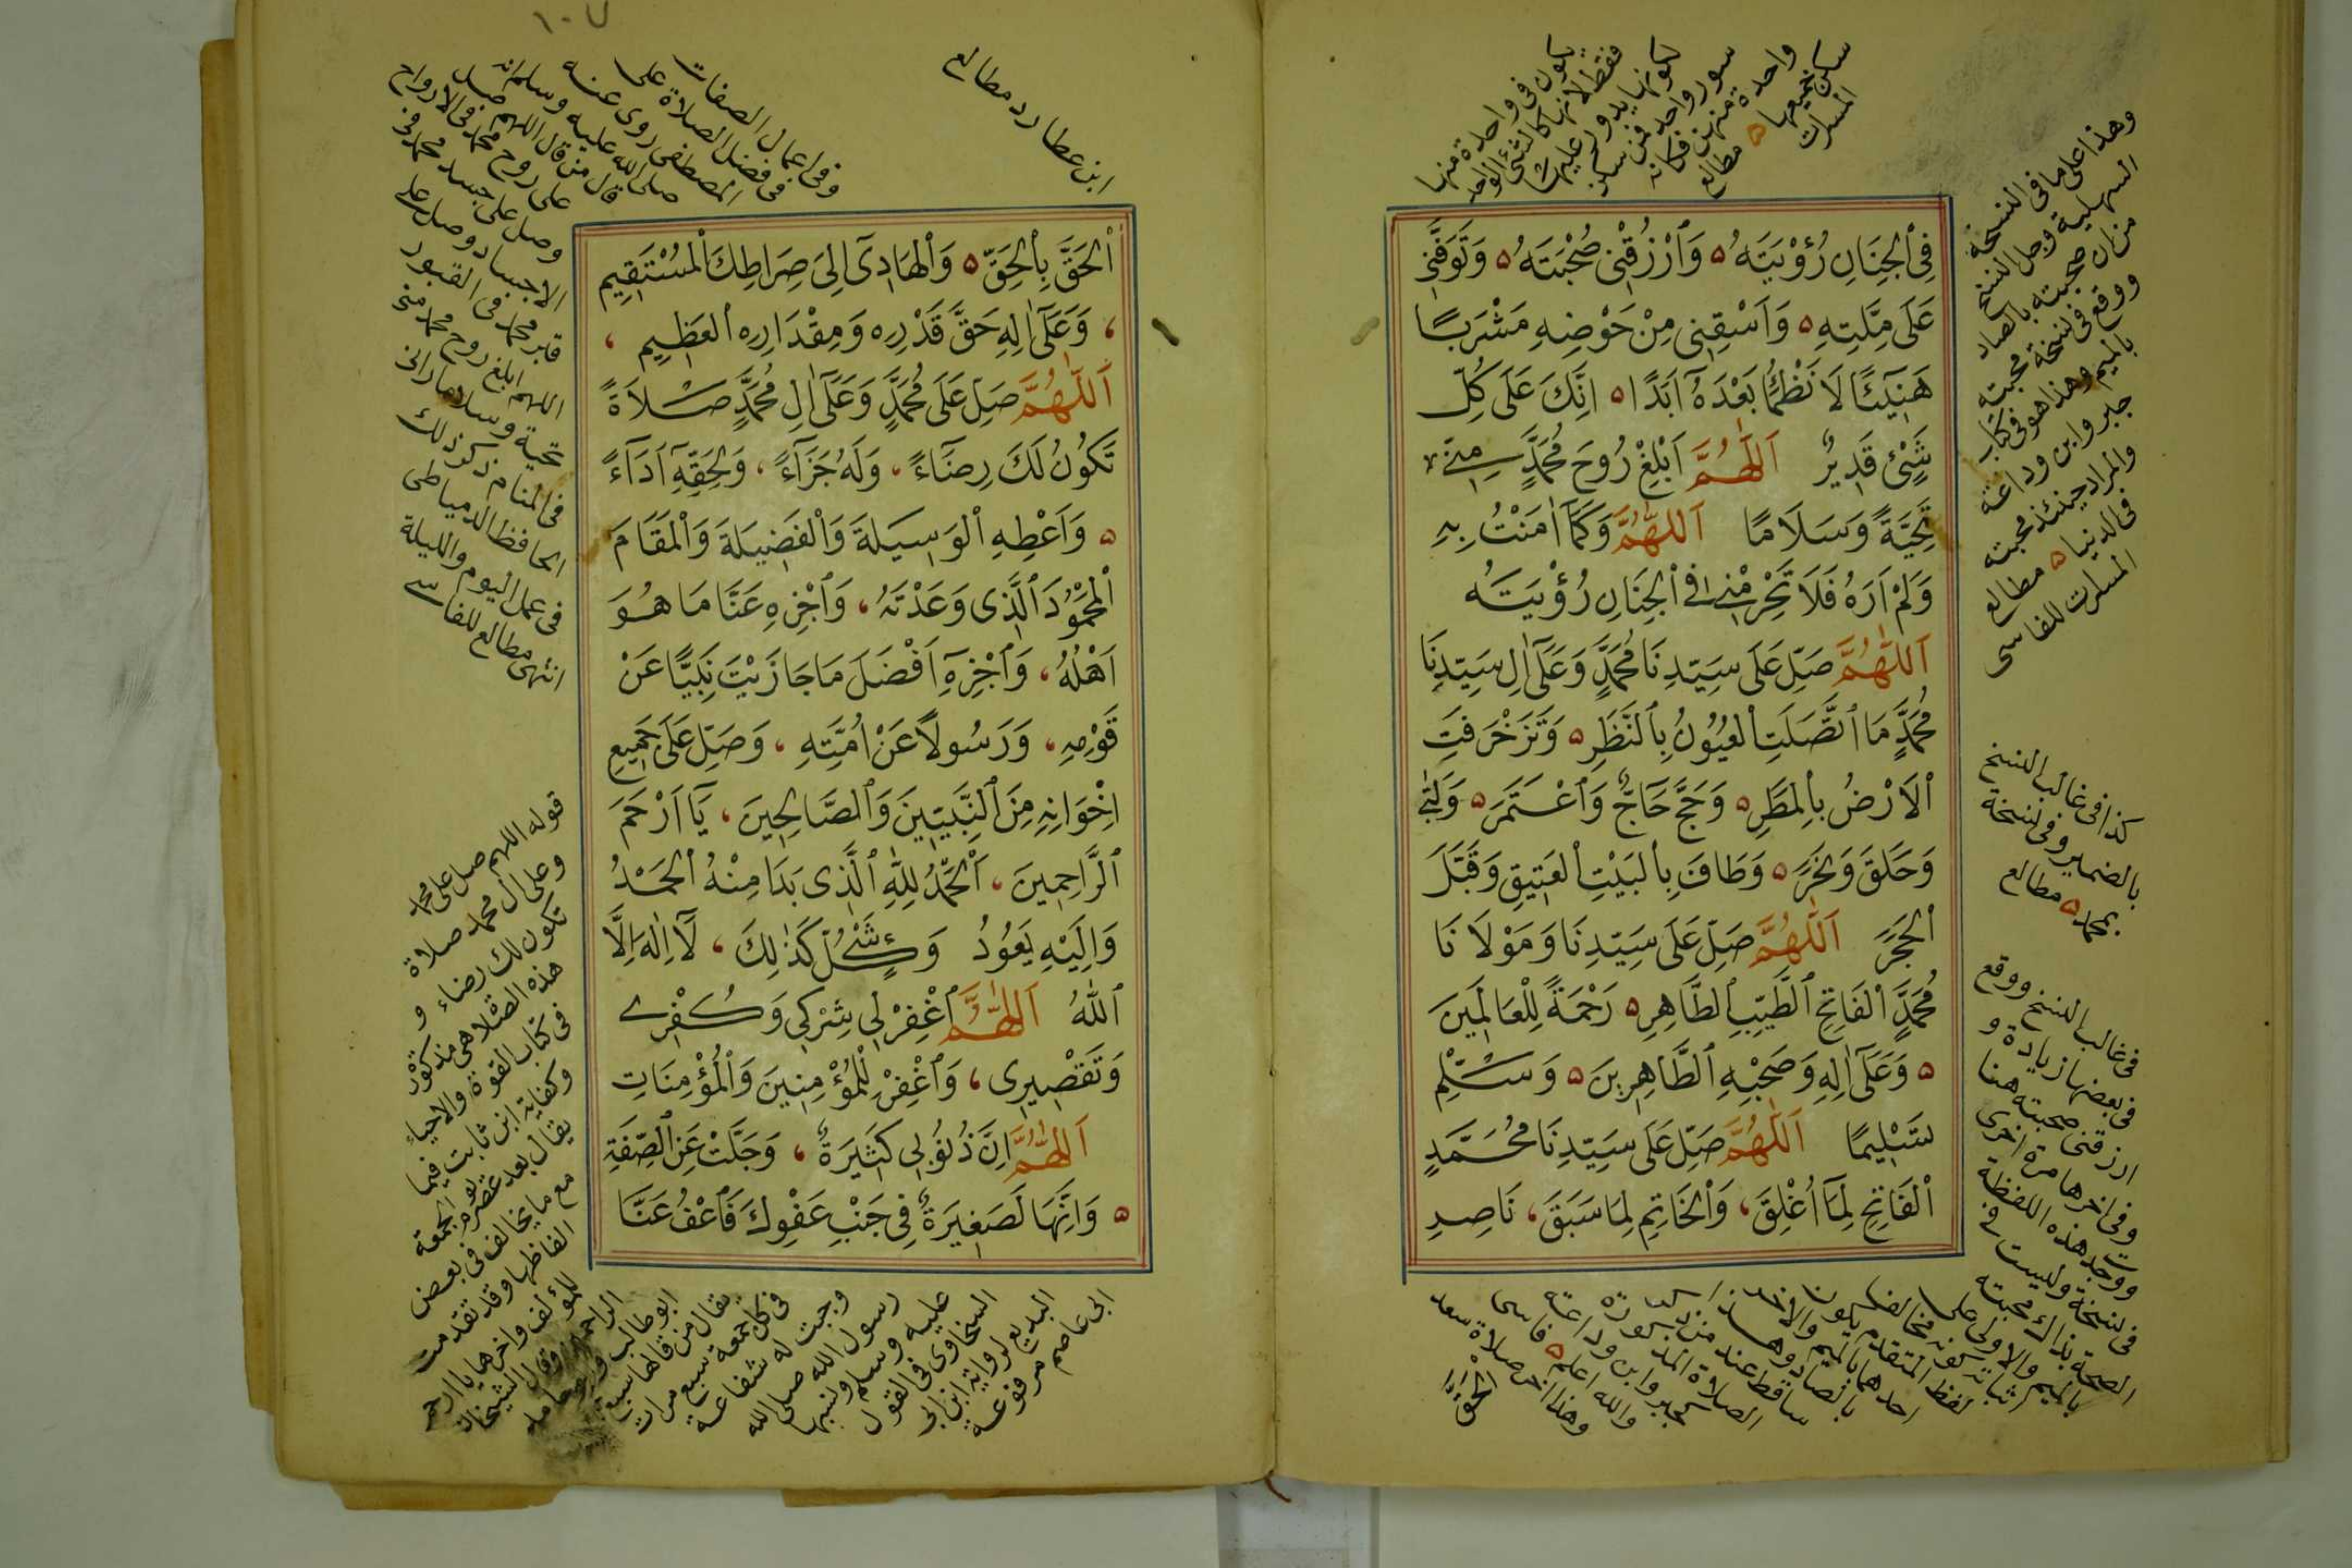 فِى ٱلْجِنَانِ رُؤْيَتَهُ ۵ وَٱرْزُقْنِى صُحْبَتَهُ ۵ وَتَوَفَّنِى
عَلَى مِلَّتِهِ ۵ وَاَسْقِنِى مِنْ حَوْضِهِ مَشْرَبًا
هَنِيٓئًا لَا نَظْمَأُ بَعْدَهُٓ اَبَدًا ۵ اِنَّكَ عَلَى كُلِّ
شَىْءٍ قَدِيرٌ اَللّٰهُمَّ اَبْلِغْ رُوحَ مُحَمَّدٍ مِنِّى
تَحِيَّةً وَسَلَامًا اَللّٰهُمَّ وَكَمَآ اٰمَنْتُ بِهِ
وَلَمْ اَرَهُ فَلَا تَحْرِمْنِى فِى ٱلْجِنَانِ رُؤْيَتَهُ
اَللّٰهُمَّ صَلِّ عَلَى سَيِّدِنَا مُحَمَّدٍ وَعَلَىٓ اٰلِ سَيِّدِنَا
مُحَمَّدٍ مَا ٱتَّصَلَتِ ٱلْعُيُونُ بِٱلنَّظَرِ ۵ وَتَزَخْرَفَتِ
ٱلْاَرْضُ بِٱلْمَطَرِ ۵ وَحَجَّ حَاجٌّ وَٱعْتَمَرَ ۵ وَلَبَّى
وَحَلَقَ وَنَحَرَ ۵ وَطَافَ بِٱلْبَيْتِ ٱلْعَتِيقِ وَقَبَّلَ
ٱلْحَجَرَ اَللّٰهُمَّ صَلِّ عَلَى سَيِّدِنَا وَمَوْلَانَا
مُحَمَّدٍ ٱلْفَاتِحِ ٱلطَّيِّبِ ٱلطَّاهِرِ ۵ رَحْمَةً لِلْعَالَمِينَ
۵ وَعَلَىٓ اٰلِهِ وَصَحْبِهِ ٱلطَّاهِرِينَ ۵ وَسَلِّمْ
تَسْلِيمًا اَللّٰهُمَّ صَلِّ عَلَى سَيِّدِنَا مُحَمَّدٍ
ٱلْفَاتِحِ لِمَآ اُغْلِقَ، وَٱلْخَاتِمِ لِمَا سَبَقَ، نَاصِرِ
يكون فى واحدة منها
فقط لانها كالشئ الواحد
لكونها يدور عليها
سور واحد فمن سكن
واحدة منهن فكانه
سكن جميعها ۵ مطالع
المسرات
وهذا على ما فى النسخة
السهلية وجل النسخ
من ان صحبته بالصاد
ووقع فى نسخة محبته
بالميم وهذا هو فى كتاب
جبر وابن وداعة
والمراد حينئذ محبته
فى الدنيا ۵ مطالع
المسرات للفاسى
كذا فى غالب النسخ
بالضمير وفى نسخة
بمحمد ۵ مطالع
فى غالب النسخ ووقع
فى بعضها زيادة و
ارزقنى صحبته هنا
وفى اخرها مرة اخرى
ووجد هذه اللفظة
فى نسخة وليست فى
الصحة بذاك محبته
بالميم والاولى على
لفظ المتقدم
احدهما بالميم والاخر
بالصاد
ساقط عند من
الصلاة
كجبر وابن وداعة
والله اعلم ۵ فاسى
وهذا اخر صلاة سعد
الحق
١٠٧
ٱلْحَقِّ بِٱلْحَقِّ ۵ وَٱلْهَادِىٓ اِلَى صِرَاطِكَ ٱلْمُسْتَقِيمِ
، وَعَلَىٓ اٰلِهِ حَقَّ قَدْرِهِ وَمِقْدَارِهِ ٱلْعَظِيمِ ،
اَللّٰهُمَّ صَلِّ عَلَى مُحَمَّدٍ وَعَلَىٓ اٰلِ مُحَمَّدٍ صَلَاةً
تَكُونُ لَكَ رِضَآءً، وَلَهُ جَزَآءً، وَلِحَقِّهِٓ اَدَآءً
۵ وَاَعْطِهِ ٱلْوَسِيلَةَ وَٱلْفَضِيلَةَ وَٱلْمَقَامَ
ٱلْمَحْمُودَ ٱلَّذِى وَعَدْتَهُ، وَٱجْزِهِ عَنَّا مَا هُوَ
اَهْلُهُ، وَٱجْزِهِٓ اَفْضَلَ مَا جَازَيْتَ نَبِيًّا عَنْ
قَوْمِهِ، وَرَسُولًا عَنْ اُمَّتِهِ، وَصَلِّ عَلَى جَمِيعِ
اِخْوَانِهِ مِنَ ٱلنَّبِيِّينَ وَٱلصَّالِحِينَ، يَآ اَرْحَمَ
ٱلرَّاحِمِينَ، اَلْحَمْدُ لِلّٰهِ ٱلَّذِى بَدَا مِنْهُ ٱلْحَمْدُ
وَاِلَيْهِ يَعُودُ وَكُلُّ شَىْءٍ كَذٰلِكَ، لَآ اِلٰهَ اِلَّا
ٱللّٰهُ اَللّٰهُمَّ ٱغْفِرْ لِى شِرْكِى وَكُفْرِى
وَتَقْصِيرِى، وَٱغْفِرْ لِلْمُؤْمِنِينَ وَٱلْمُؤْمِنَاتِ
اَللّٰهُمَّ اِنَّ ذُنُوبِى كَثِيرَةٌ، وَجَلَّتْ عَنِ ٱلصِّفَةِ
۵ وَاِنَّهَا لَصَغِيرَةٌ فِى جَنْبِ عَفْوِكَ فَٱعْفُ عَنَّا
ابن عطارد مطالع
وفى اعمال الصفات
فى فضل الصلاة على
المصطفى روى عنه
صلى الله عليه وسلم انه
قال من قال اللهم صل
على روح محمد فى الارواح
وصل على جسد محمد فى
الاجساد وصل على
قبر محمد فى القبور
اللهم ابلغ روح محمد منى
تحية وسلاما رانى
فى المنام ذكر ذلك
الحافظ الدمياطى
فى عمل اليوم والليلة
انتهى مطالع للفاسى
قوله اللهم صل على محمد
وعلى آل محمد صلاة
تكون لك رضاء و
هذه الصلاة هى مذكورة
فى كتاب القوة والاحياء
وكفاية ابن ثابت فيما
يقال بعد عصر يوم الجمعة
مع ما يخالف فى بعض
الفاظها وقد تقدمت
للمؤلف واخرها يا ارحم
الراحمين وقال الشيخان
ابو طالب وابو حامد
يقال من قالها سبع
فى كل جمعة سبع مرات
وجبت له شفاعة
رسول الله صلى الله
عليه وسلم ونسبها
السخاوى فى القول
البديع لرواية ابن ابى
ابى عاصم مرفوعة